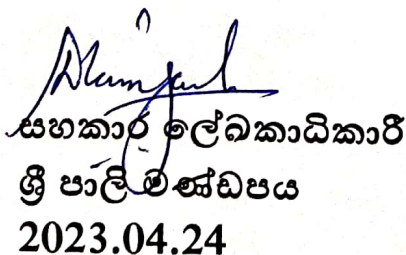 සහකාර ලේඛකාධිකාරී
ශ්‍රී පාලි මණ්ඩපය
2023.04.24